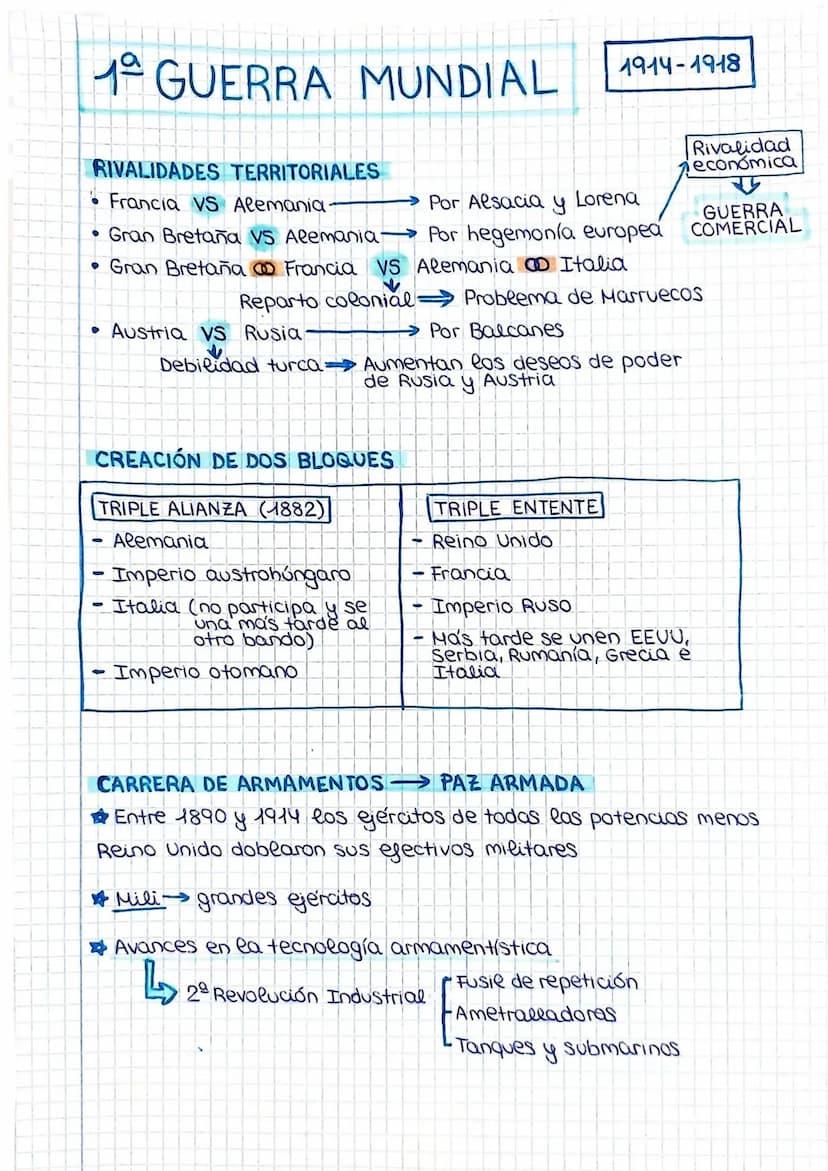 1ª GUERRA MUNDIAL
1914-1918
RIVALIDADES TERRITORIALES
• Francia VS Alemania → Por Alsacia y Lorena
• Gran Bretaña VS Alemania → Por hegemonía europea
Rivalidad
económica
GUERRA
COMERCIAL
• Gran Bretaña Francia VS Alemania Italia
Reparto colonial ⇒ Problema de Marruecos
• Austria VS Rusia → Por Balcanes
Debilidad turca ⇒ Aumentan los deseos de poder
de Rusia y Austria
CREACIÓN DE DOS BLOQUES
TRIPLE ALIANZA (1882)
- Alemania
- Imperio austrohúngaro
- Italia (no participa y se
una más tarde al
otro bando)
- Imperio otomano
TRIPLE ENTENTE
- Reino Unido
- Francia
- Imperio Ruso
- Más tarde se unen EEUU,
Serbia, Rumanía, Grecia e
Italia
CARRERA DE ARMAMENTOS → PAZ ARMADA
Entre 1890 y 1914 los ejércitos de todas las potencias menos
Reino Unido doblaron sus efectivos militares
Mili → grandes ejércitos
Avances en la tecnología armamentística
2ª Revolución Industrial
Fusil de repetición
Ametralladoras
Tanques y submarinos